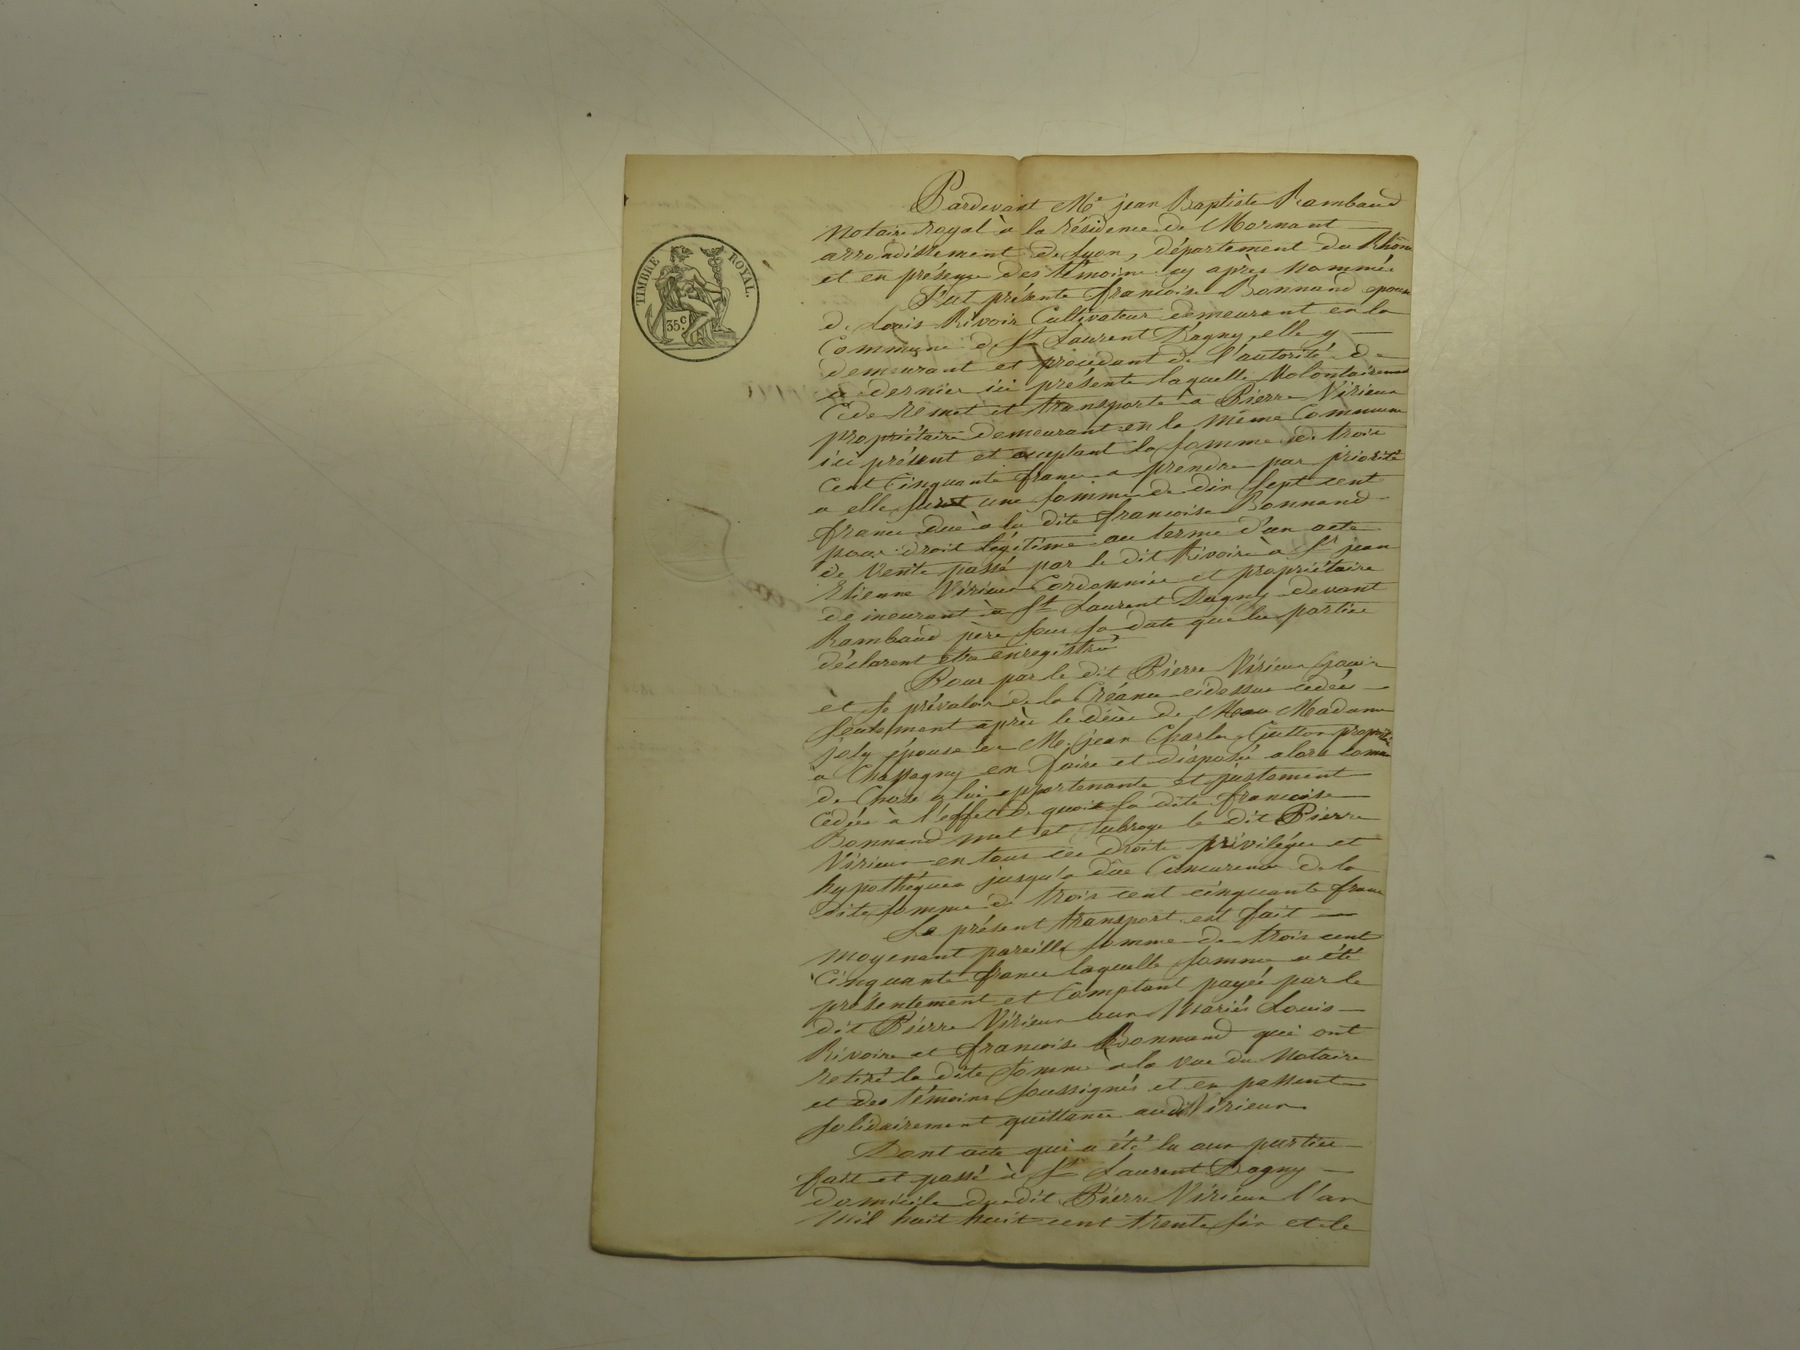 TIMBRE ROYAL.
35c
Pardevant Me jean Baptiste Rambaud
Notaire royal à la résidence de Mornant
arrondissement de Lyon, département du Rhône
et en présence des témoins cy après nommés
Fut présente françoise Bonnand epouse
de Louis Rivoir Cultivateur demeurant en la
Commune de St Laurent D'agny, elle y
demeurant et procédant de l'autorité de
ce dernier ici présente laquelle Volontairement
Cède remet et transporte à Pierre Virieux
propriétaire demeurant en la même Commune
ici présent et acceptant la somme de trois
Cent Cinquante francs a prendre par priorité
a elle sur une somme de dix sept cent
francs due à la dite françoise Bonnand
pour droit légitime au terme d'un acte
de Vente passé par le dit Rivoire à Sr jean
Etienne Virieux Cordonnier et propriétaire
demeurant à St Laurent Dagny devant
Rambaud père sous sa date que les parties
déclarent etre enregistré
Pour par le dit Pierre Virieux jouir
et se prévaloir de la Créance cidessus cedée
seulement après le décès de Madame
joly épouse de Mr jean Charles Gutton propriétre
a Chassagny en faire et disposé alors comme
de Chose a lui appartenante et justement
Cédée à l'effet de quoi la dite françoise
Bonnand met et subroge le dit Pierre
Virieux en tous ces droits privilèges et
hypothéques jusqu'a due Concurence de la
dite somme de trois cent cinquante francs
Le présent transport est fait
moyenant pareille somme de trois cent
Cinquante francs laquelle somme a été
présentement et Comptant payée par le
dit Pierre Virieux aux Mariés Louis
Rivoire et françoise Bonnand qui ont
retiré la dite somme a la vue du Notaire
et des témoins soussignés et en passent
solidairement quittance audit Virieux.
Dont acte qui a été lu aux parties
fait et passé à St Laurent Dagny
domicile dudit Pierre Virieux l'an
Mil huit huit cent trente six et le